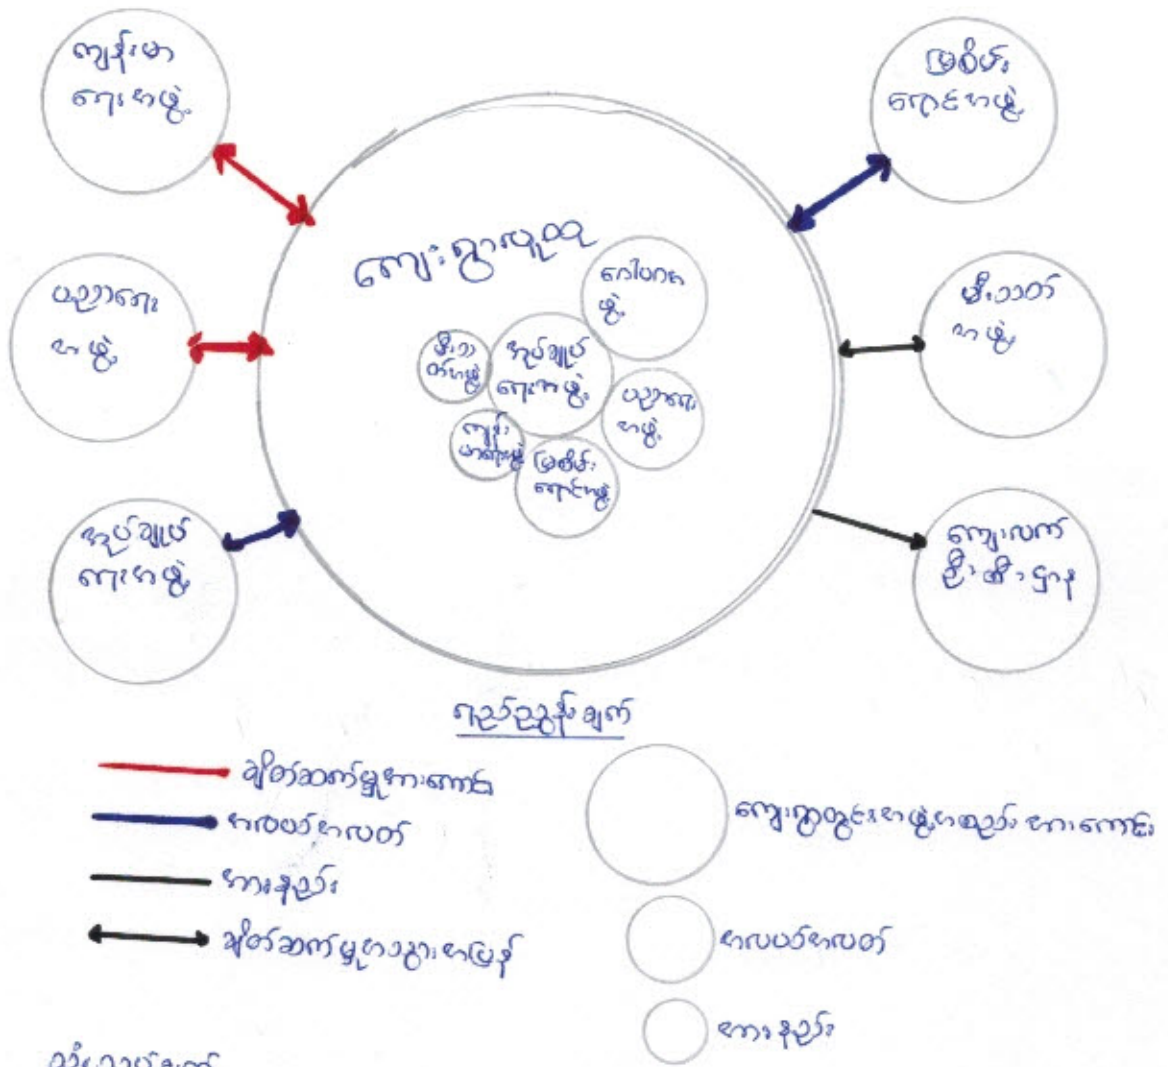 ကျန်းမာ
ရေးအဖွဲ့
မြစိမ်း
ရောင်အဖွဲ့
ပညာရေး
အဖွဲ့
မီးသတ်
အဖွဲ့
အုပ်ချုပ်
ရေးအဖွဲ့
ကျေးလက်
ဦးစီးဌာန
ကျေးရွာလူထု
ဖွဲ့
မီးသ
တ်အဖွဲ့
အုပ်ချုပ်
ရေးအဖွဲ့
ပညာရေး
အဖွဲ့
ကျန်း
မာရေးဖွဲ့
မြစိမ်း
ရောင်အဖွဲ့
ရည်ညွှန်းချက်
ချိတ်ဆက်မှုအားကောင်း
အလယ်အလတ်
အားနည်း
ချိတ်ဆက်မှုအသွားအပြန်
ကျေးရွာတွင်းအဖွဲ့အစည်းအားကောင်း
အလယ်အလတ်
အားနည်း